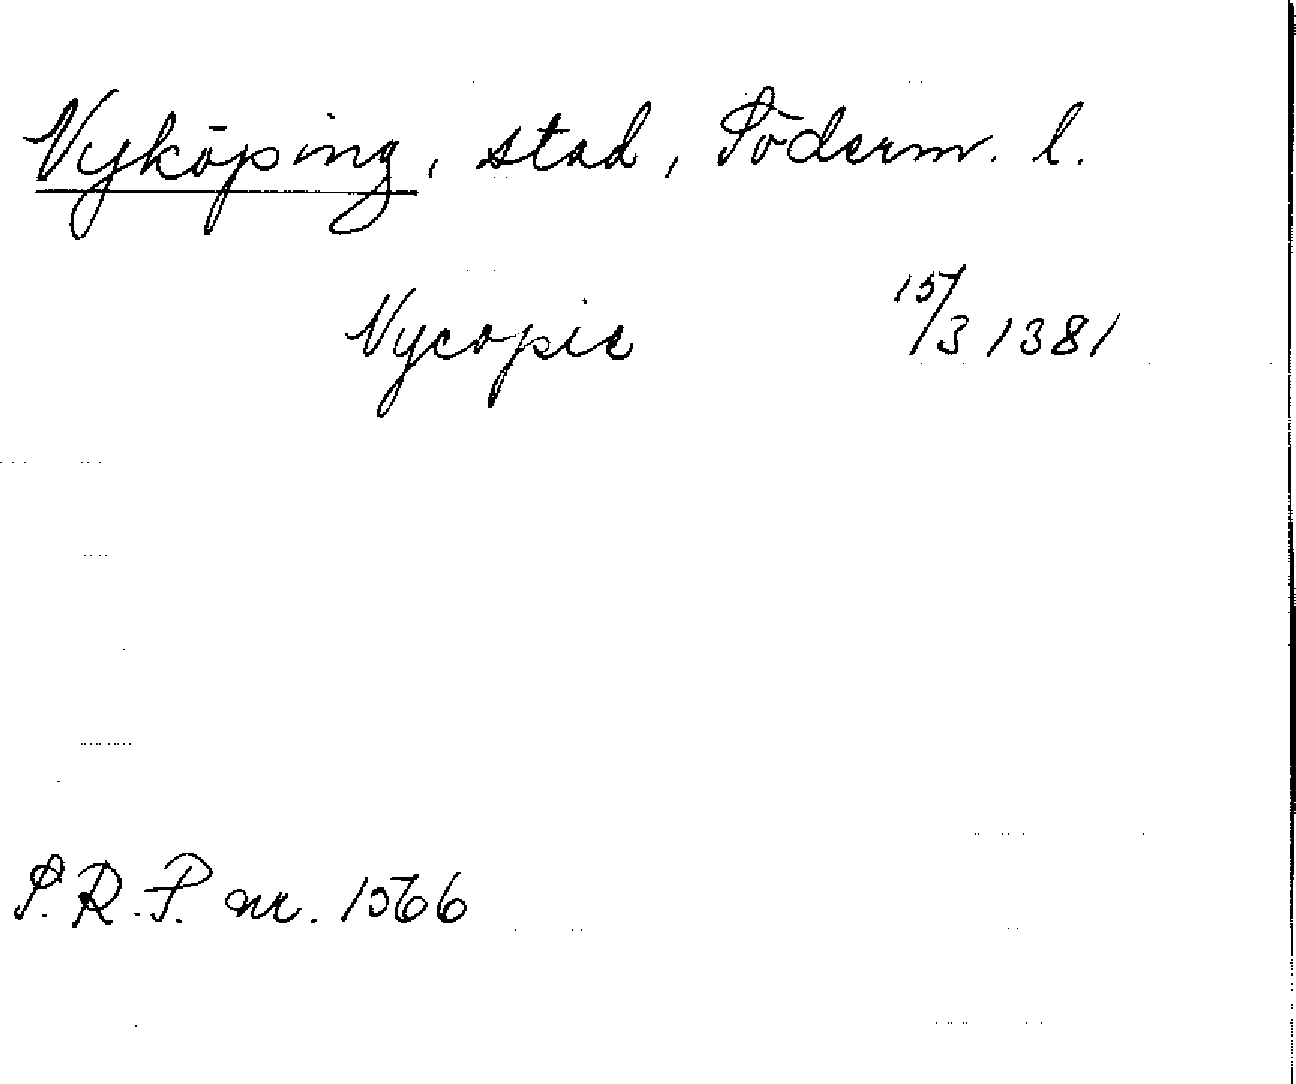 Nyköping, stad, Söderm. l.
Nycopie 15/3 1381
S.R.P. nr. 1566